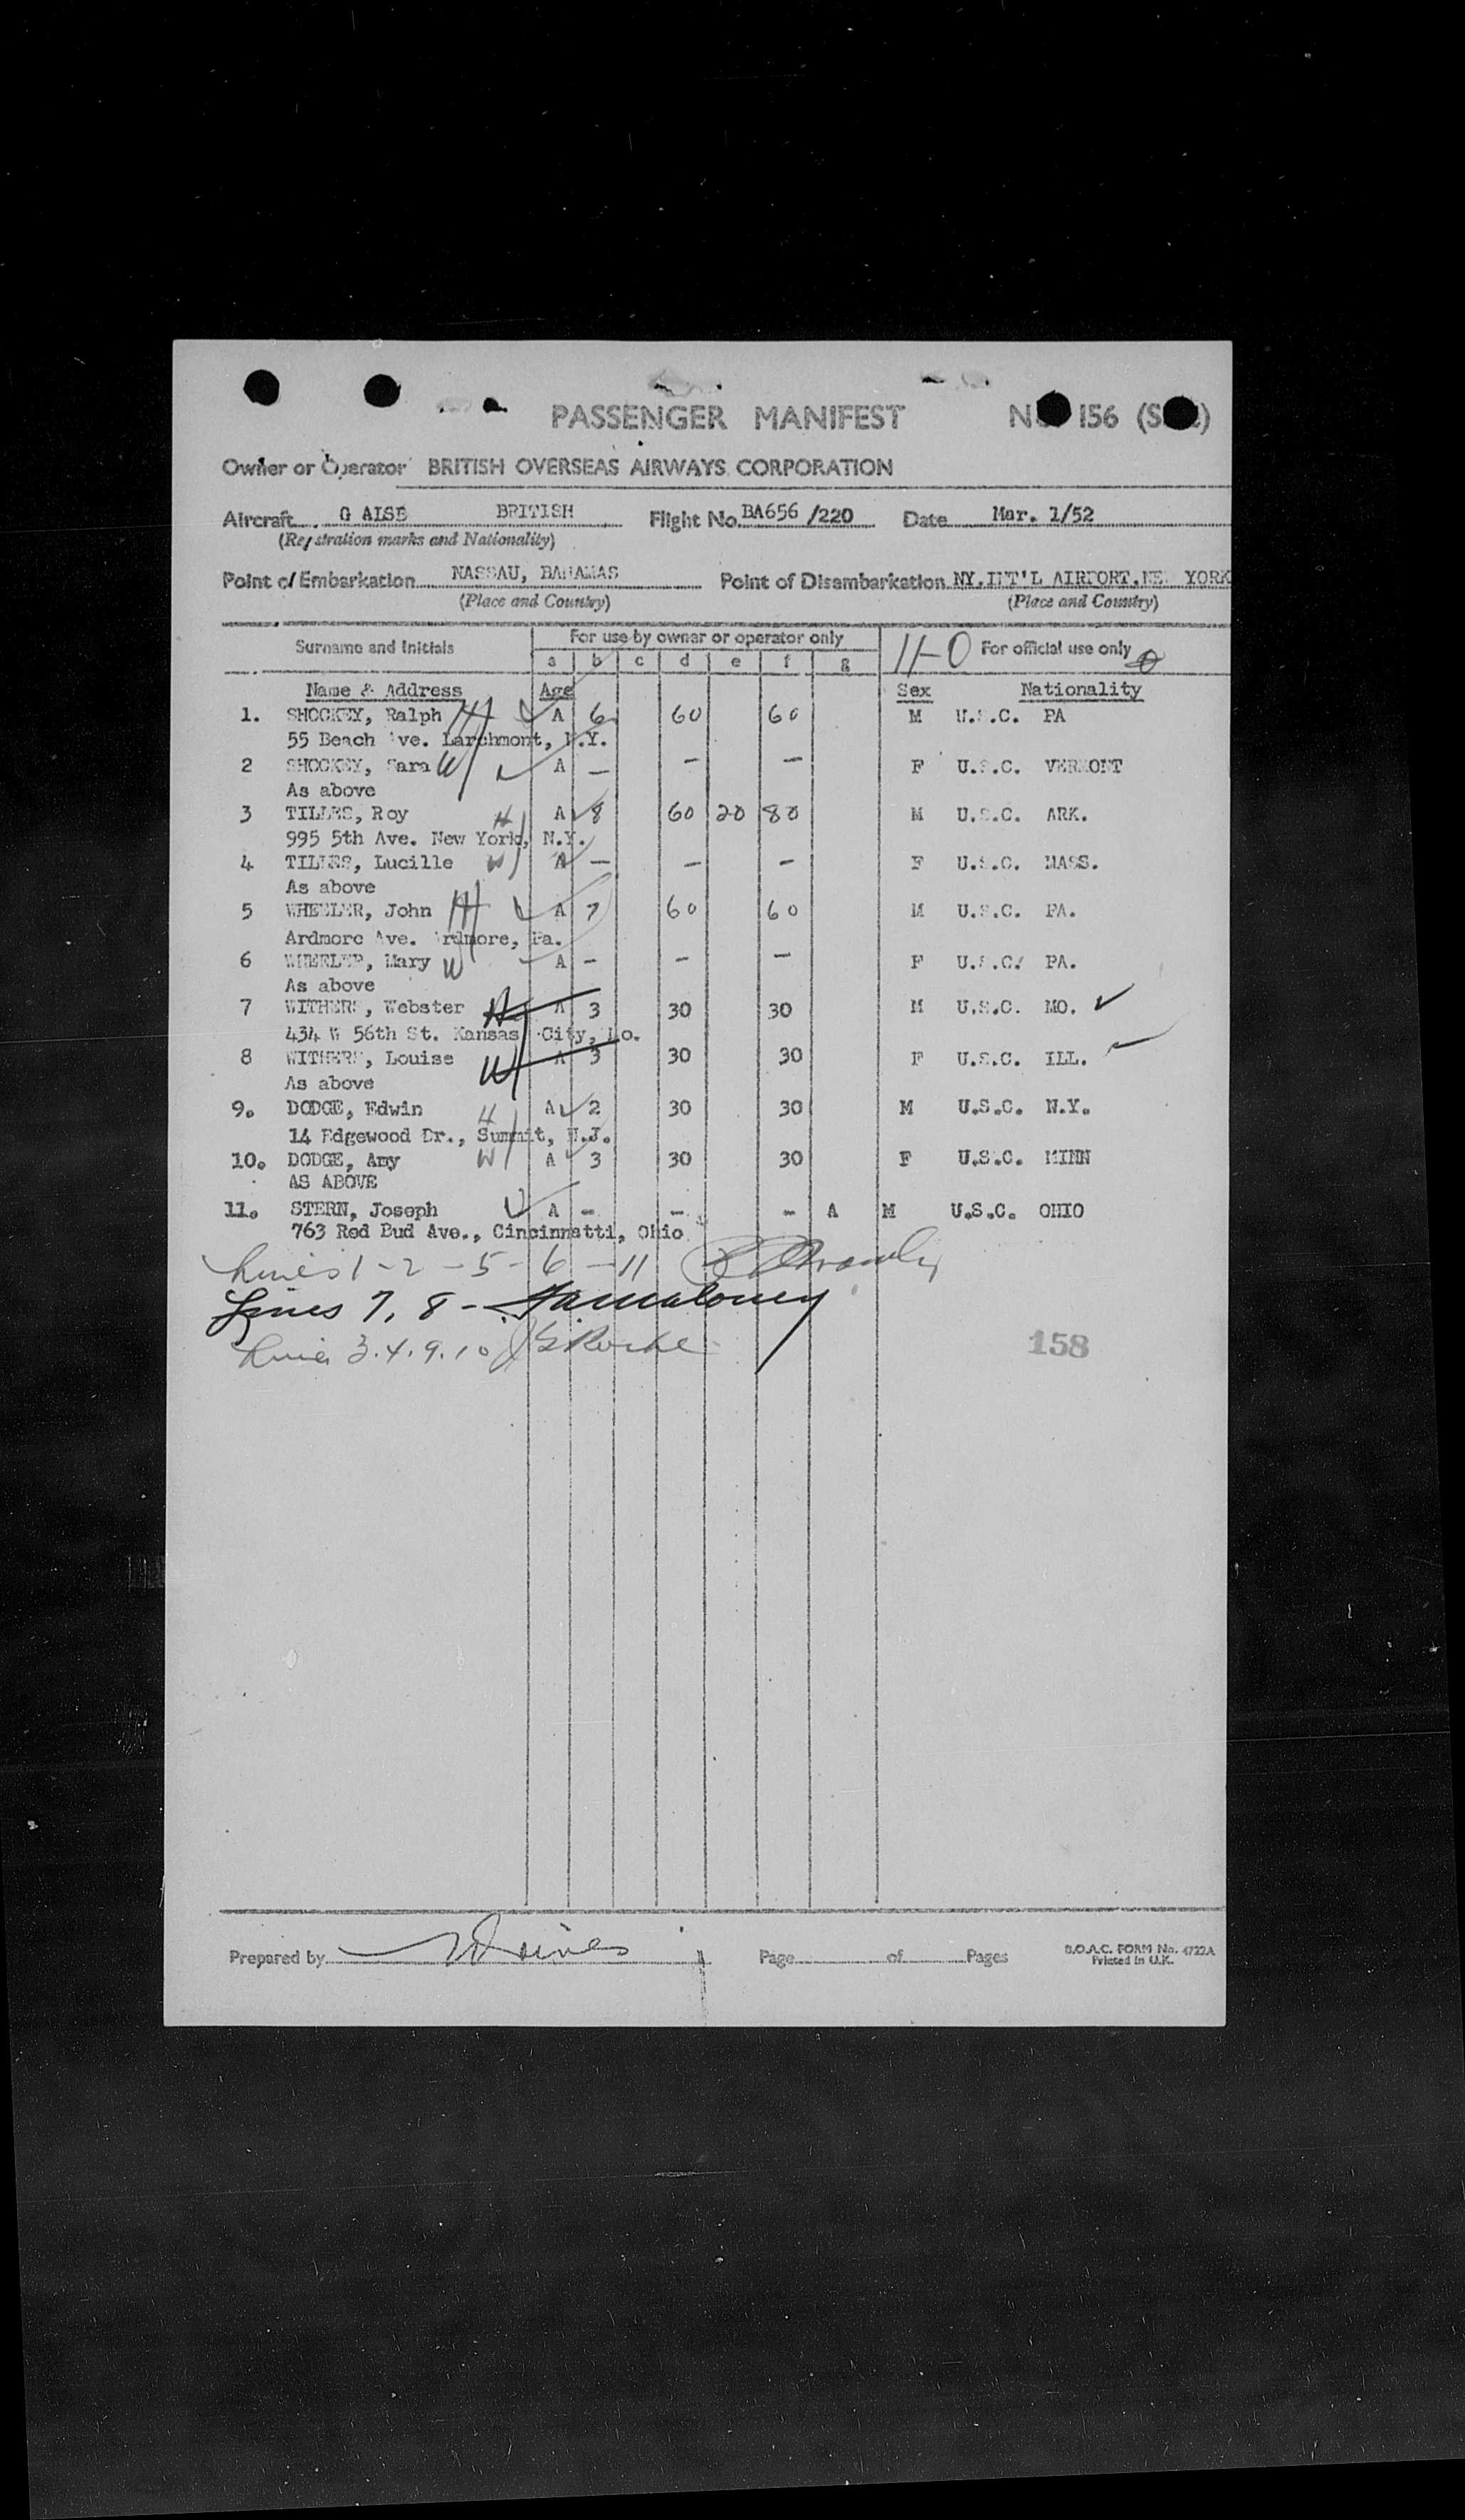 PASSENGER MANIFEST 156
Owner or Operator BRITISH OVERSEAS AIRWAYS CORPORATION
Aircraft G ALSB BRITISH Flight No. BA656 /220 Date Mar. 1/52
(Registration marks and Nationality)
Point of Embarkation NASSAU, BAHAMAS Point of Disembarkation NY.INT'L AIRPORT.NEW YORK
(Place and Country) (Place and Country)
Surname and Initials For use by owner or operator only 11-0 For official use only
a b c d e f g
Name & Address Age Sex Nationality
1. SHOCKEY, Ralph H A 6 60 60 M U.S.C. PA
55 Beach Ave. Larchmont, N.Y.
2 SHOCKEY, Sara W A — — — F U.S.C. VERMONT
As above
3 TILLES, Roy H A 8 60 20 80 M U.S.C. ARK.
995 5th Ave. New York, N.Y.
4 TILLES, Lucille W A — — — F U.S.C. MASS.
As above
5 WHEELER, John H A 7 60 60 M U.S.C. PA.
Ardmore Ave. Ardmore, Pa.
6 WHEELER, Mary W A — — — F U.S.C/ PA.
As above
7 WITHERS, Webster H A 3 30 30 M U.S.C. MO. ✓
434 W 56th St. Kansas City, Mo.
8 WITHERS, Louise W A 3 30 30 F U.S.C. ILL. ✓
As above
9. DODGE, Edwin H A 2 30 30 M U.S.C. N.Y.
14 Edgewood Dr., Summit, N.J.
10. DODGE, Amy W A 3 30 30 F U.S.C. MINN
AS ABOVE
11. STERN, Joseph A - - - A M U.S.C. OHIO
763 Red Bud Ave., Cincinnatti, Ohio
Lines 1-2-5-6-11
Lines 7, 8 -
Lines 3.4.9.10
158
Prepared by Page of Pages B.O.A.C. FORM No. 4722A
Printed in U.K.